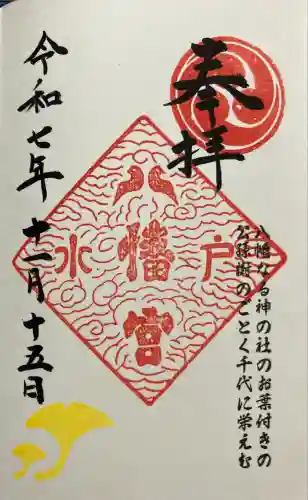 奉拝
八幡なる神の社のお葉付きの
公孫樹のごとく千代に栄えむ
水戸
八幡宮
令和七年十一月十五日